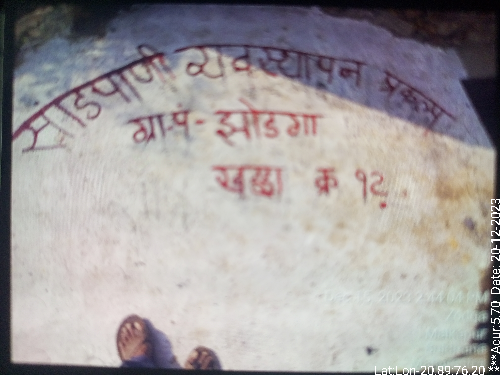 सांडपाणी व्यवस्थापन प्रकल्प
ग्रा.पं - झोडगा
खड्डा क्र १२
Lat Lon-20.89:76.20 ***Acur:5.70 Date: 20-12-2023